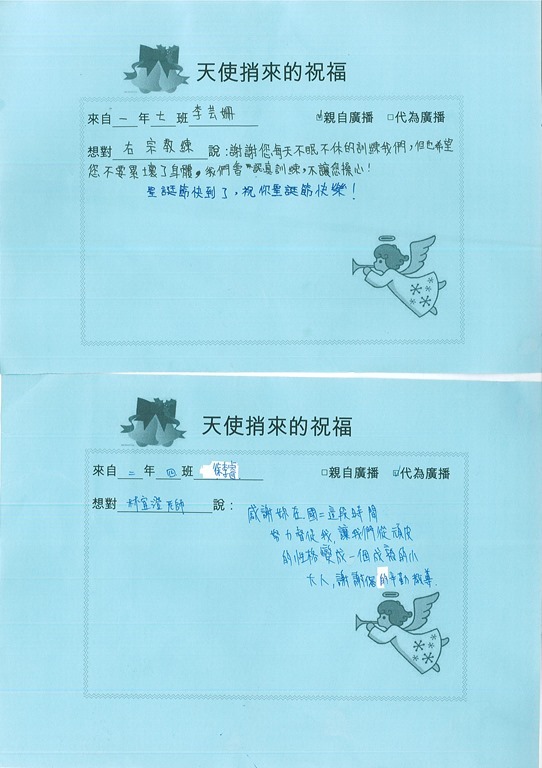 天使捎來的祝福
來自一年七班李芸姍 ☑親自廣播 □代為廣播
想對右宗教練說:謝謝您每天不眠不休的訓練我們,但也希望
您不要累壞了身體,我們會認真訓練,不讓您擔心!
聖誕節快到了,祝你聖誕節快樂!
天使捎來的祝福
來自二年四班徐李睿 □親自廣播 ☑代為廣播
想對林宜瀅老師說:
感謝妳在國二這段時間
努力督促我,讓我們從頑皮
的性格變成一個成熟的小
大人,謝謝您的辛勤教導.